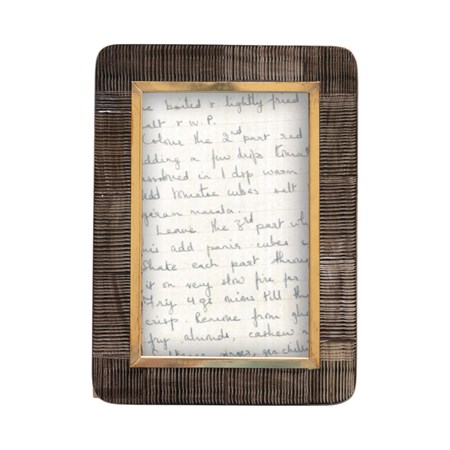 boiled & lightly fried
salt & W.P.
Colour the 2nd part red
adding a few drops tomat
in 1 dsp warm
add tomatoe cubes salt
garam masala.
Leave the 3rd part wh
add panir cubes
Shake each part throu
it on very slow fire for
Fry 4 gs till th
crisp. Remove from
fry almonds, cashew n